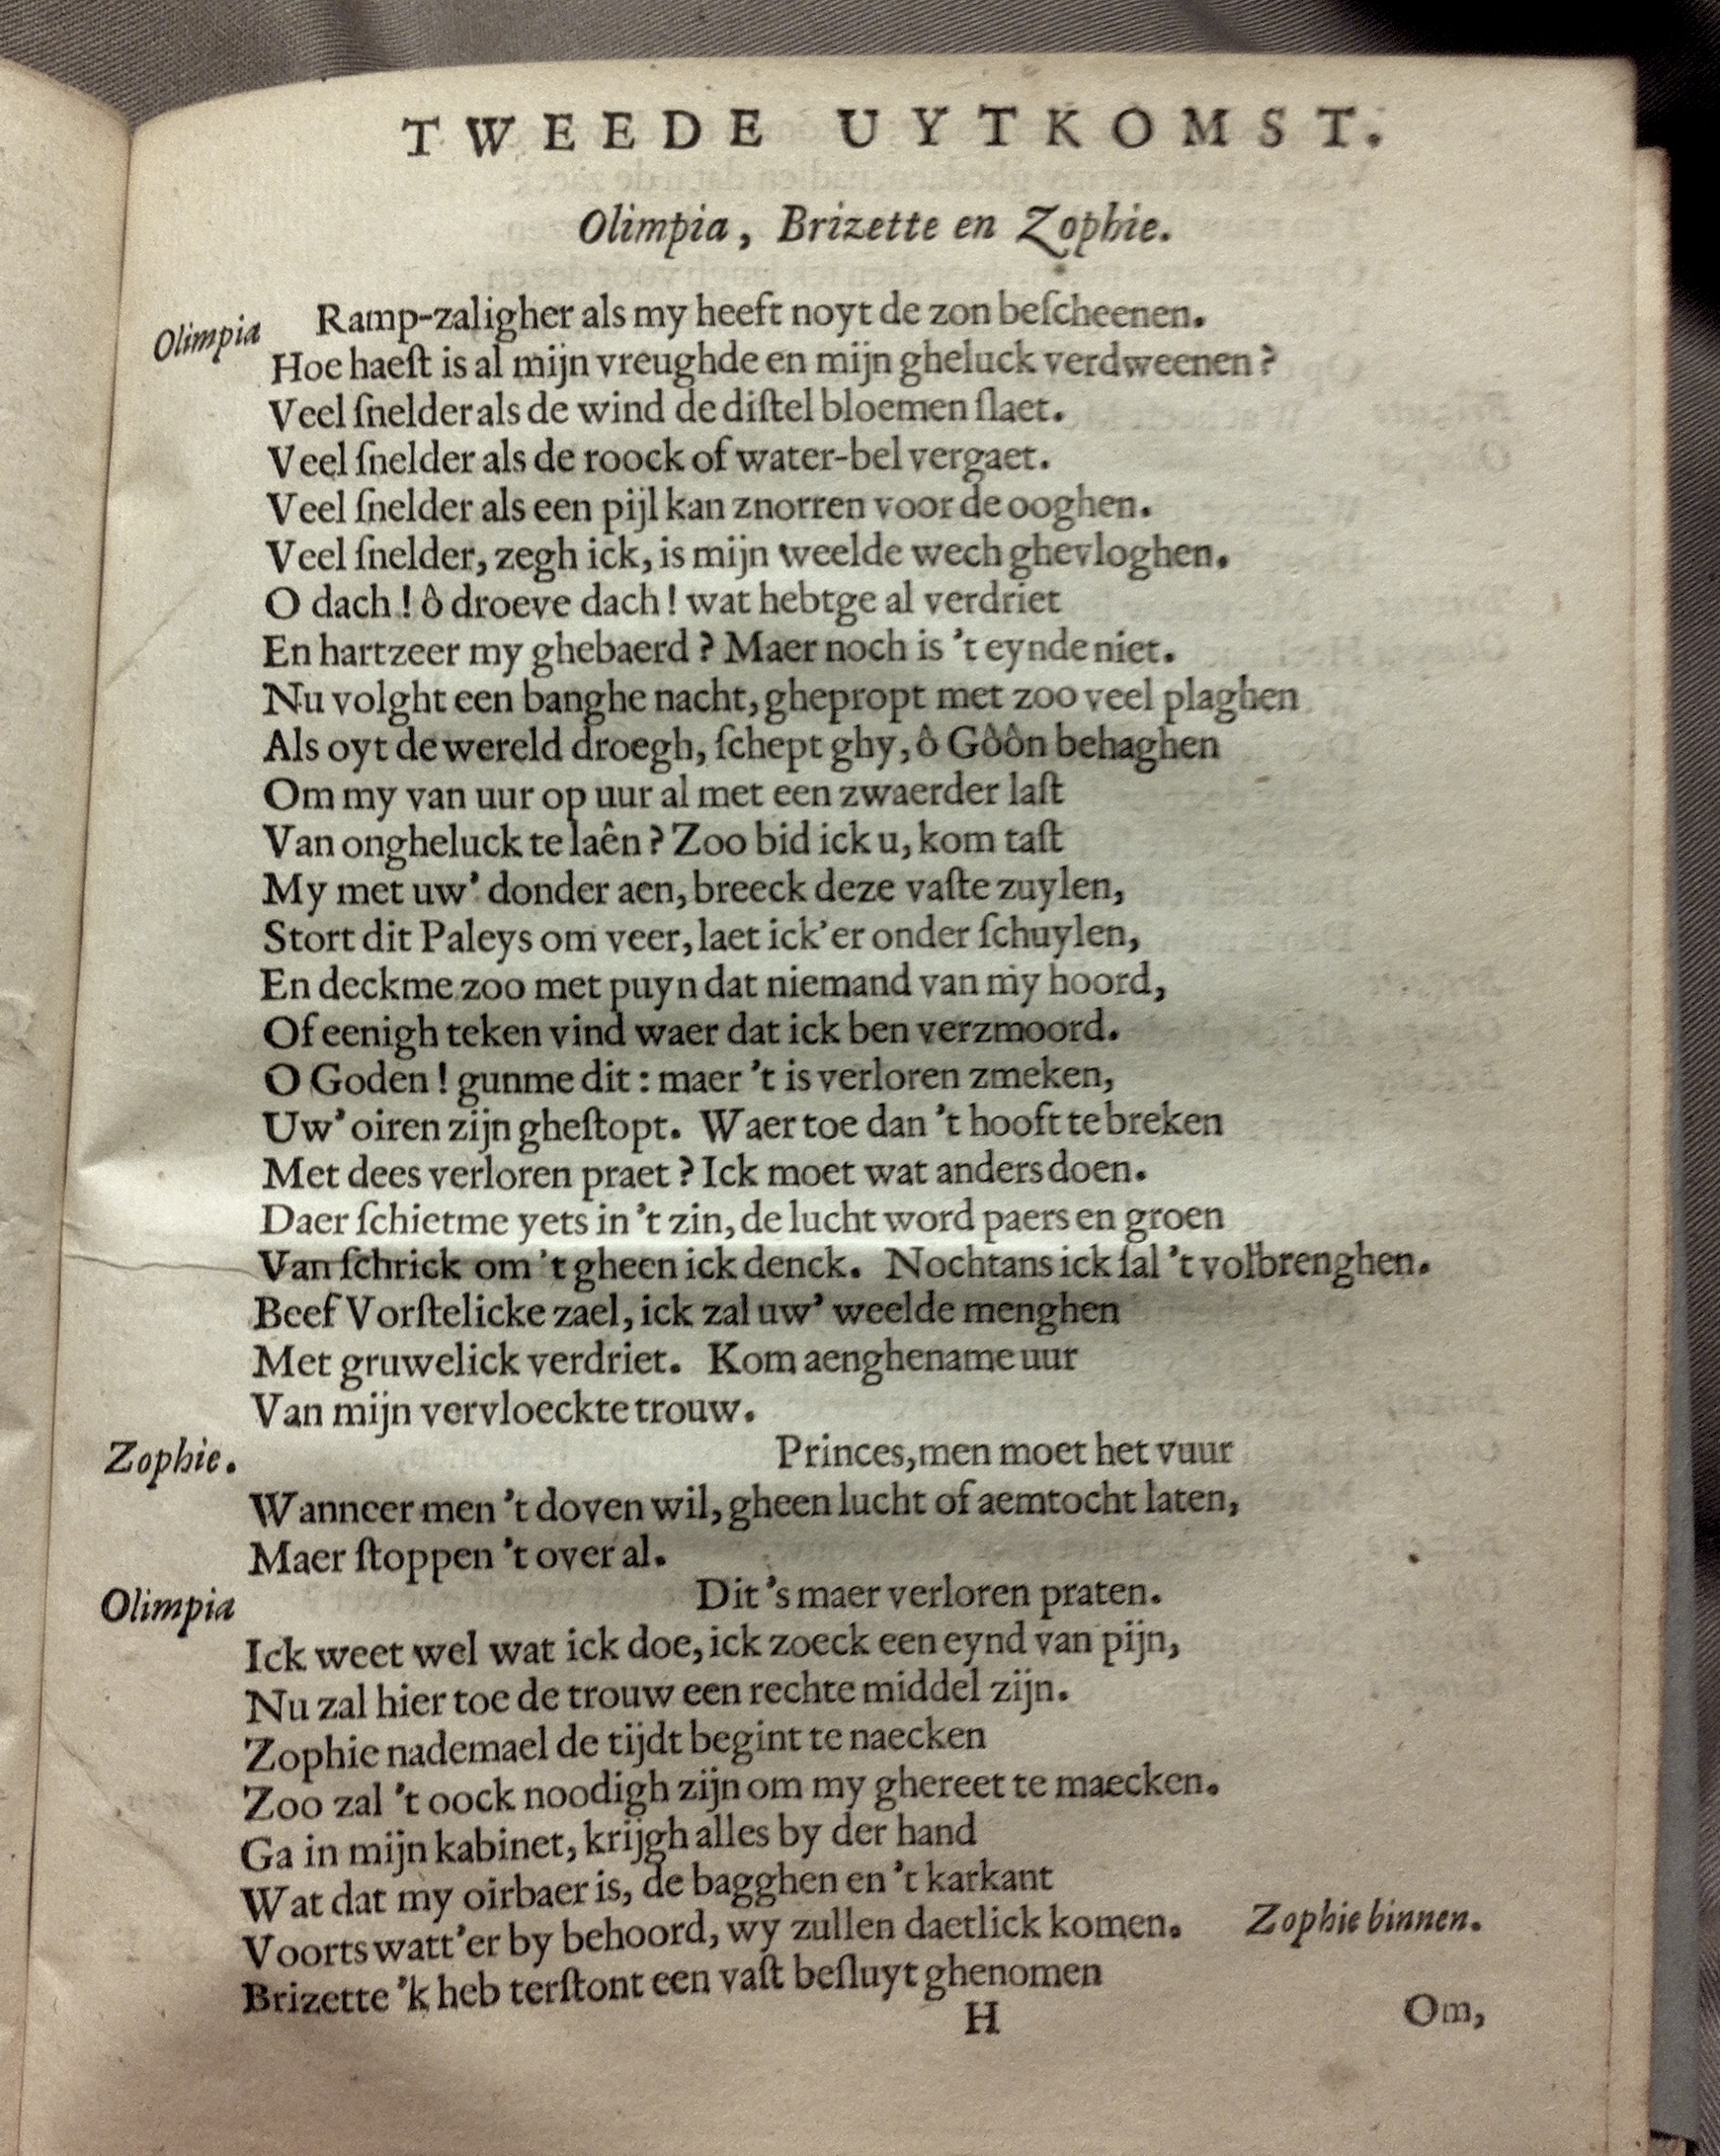 TWEEDE UYTKOMST.
Olimpia, Brizette en Zophie.
Olimpia Ramp-zaligher als my heeft noyt de zon beſcheenen.
Hoe haeſt is al mijn vreughde en mijn gheluck verdweenen?
Veel ſnelder als de wind de diſtel bloemen ſlaet.
Veel ſnelder als de roock of water-bel vergaet.
Veel ſnelder als een pijl kan znorren voor de ooghen.
Veel ſnelder, zegh ick, is mijn weelde wech ghevloghen.
O dach! ô droeve dach! wat hebtge al verdriet
En hartzeer my ghebaerd? Maer noch is 't eynde niet.
Nu volght een banghe nacht, ghepropt met zoo veel plaghen
Als oyt de wereld droegh, ſchept ghy, ô Gôôn behaghen
Om my van uur op uur al met een zwaerder laſt
Van ongheluck te laên? Zoo bid ick u, kom taſt
My met uw' donder aen, breeck deze vaſte zuylen,
Stort dit Paleys om veer, laet ick'er onder ſchuylen,
En deckme zoo met puyn dat niemand van my hoord,
Of eenigh teken vind waer dat ick ben verzmoord.
O Goden! gunme dit: maer 't is verloren zmeken,
Uw' oiren zijn gheſtopt. Waer toe dan 't hooft te breken
Met dees verloren praet? Ick moet wat anders doen.
Daer ſchietme yets in 't zin, de lucht word paers en groen
Van ſchrick om 't gheen ick denck. Nochtans ick ſal 't volbrenghen.
Beef Vorſtelicke zael, ick zal uw' weelde menghen
Met gruwelick verdriet. Kom aenghename uur
Van mijn vervloeckte trouw.
Zophie. Princes, men moet het vuur
Wanneer men 't doven wil, gheen lucht of aemtocht laten,
Maer ſtoppen 't over al.
Olimpia Dit 's maer verloren praten.
Ick weet wel wat ick doe, ick zoeck een eynd van pijn,
Nu zal hier toe de trouw een rechte middel zijn.
Zophie nademael de tijdt begint te naecken
Zoo zal 't oock noodigh zijn om my ghereet te maecken.
Ga in mijn kabinet, krijgh alles by der hand
Wat dat my oirbaer is, de bagghen en 't karkant
Voorts watt'er by behoord, wy zullen daetlick komen. Zophie binnen.
Brizette 'k heb terſtont een vaſt beſluyt ghenomen
H Om,